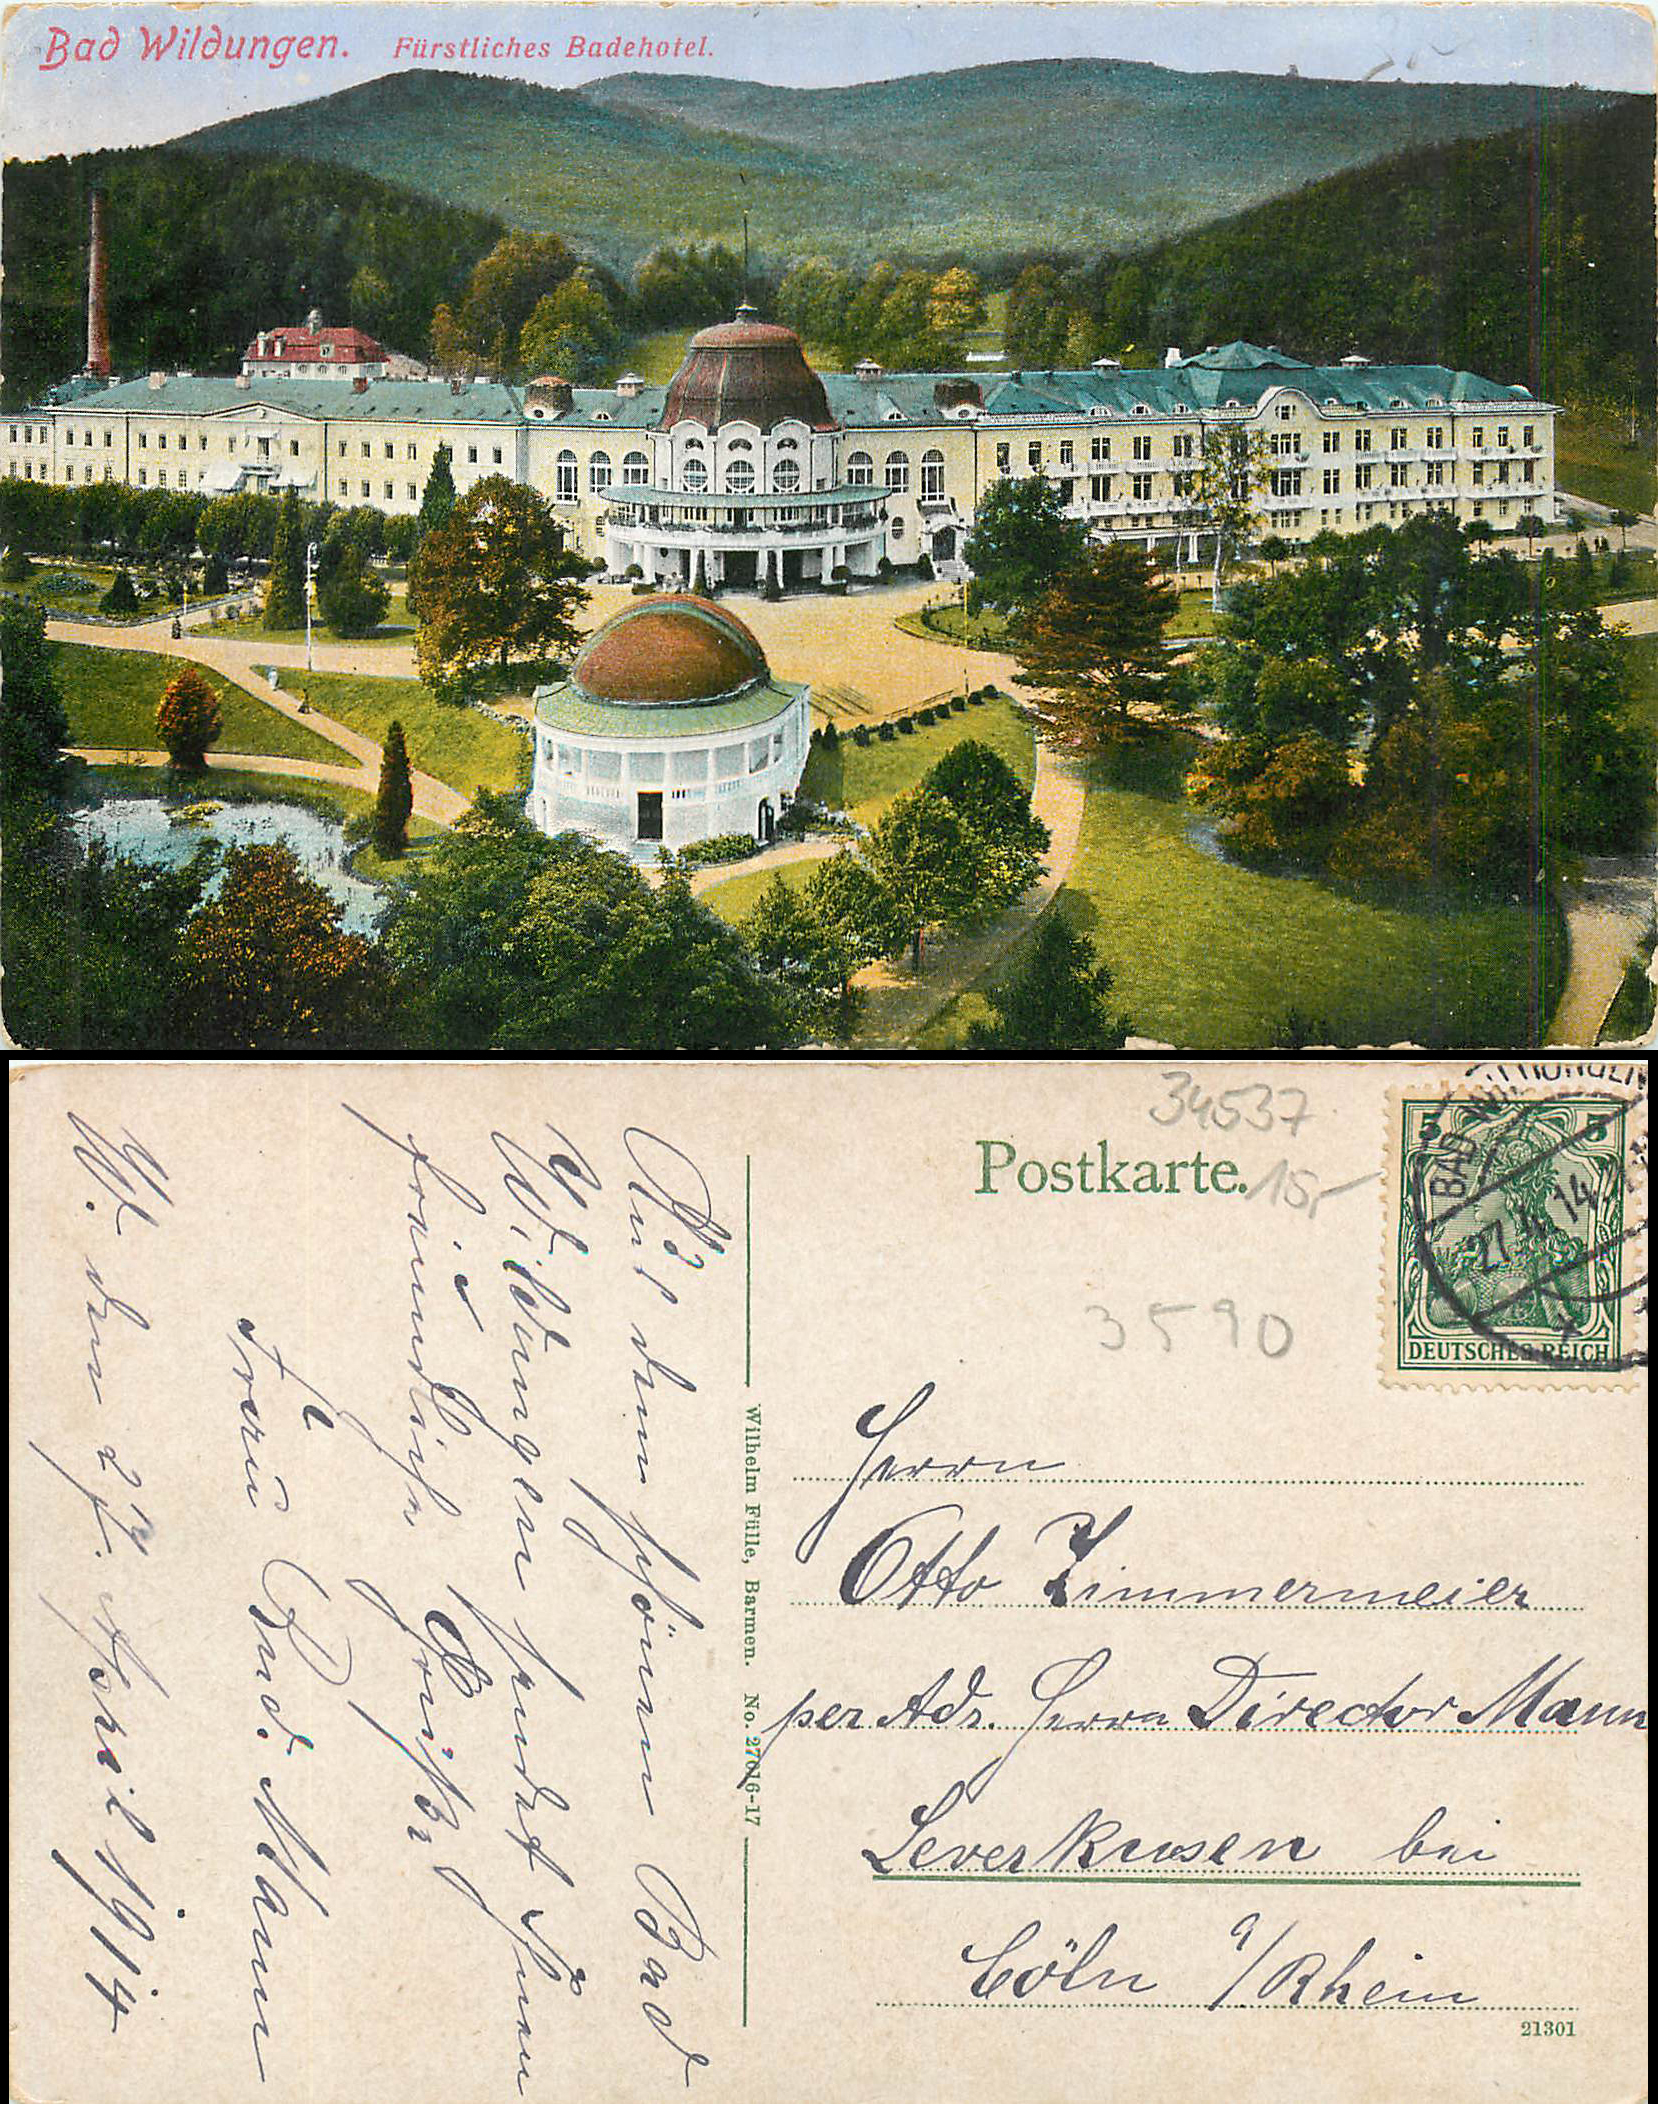 Bad Wildungen. Fürstliches Badehotel.
34537
Postkarte.
15,-
3590
5 5
DEUTSCHES REICH
BAD WILDUNGEN
27.4.14.
Aus dem schönen Bad
Wildungen sendet Ihnen
freundliche Grüße
Frau Rud. Mann
W. den 27. April 1914
Wilhelm Fülle, Barmen. No. 27616-17
Herrn
Otto Zimmermeier
per Adr. Herrn Director Mann
Leverkusen bei
Cöln a/Rhein
21301